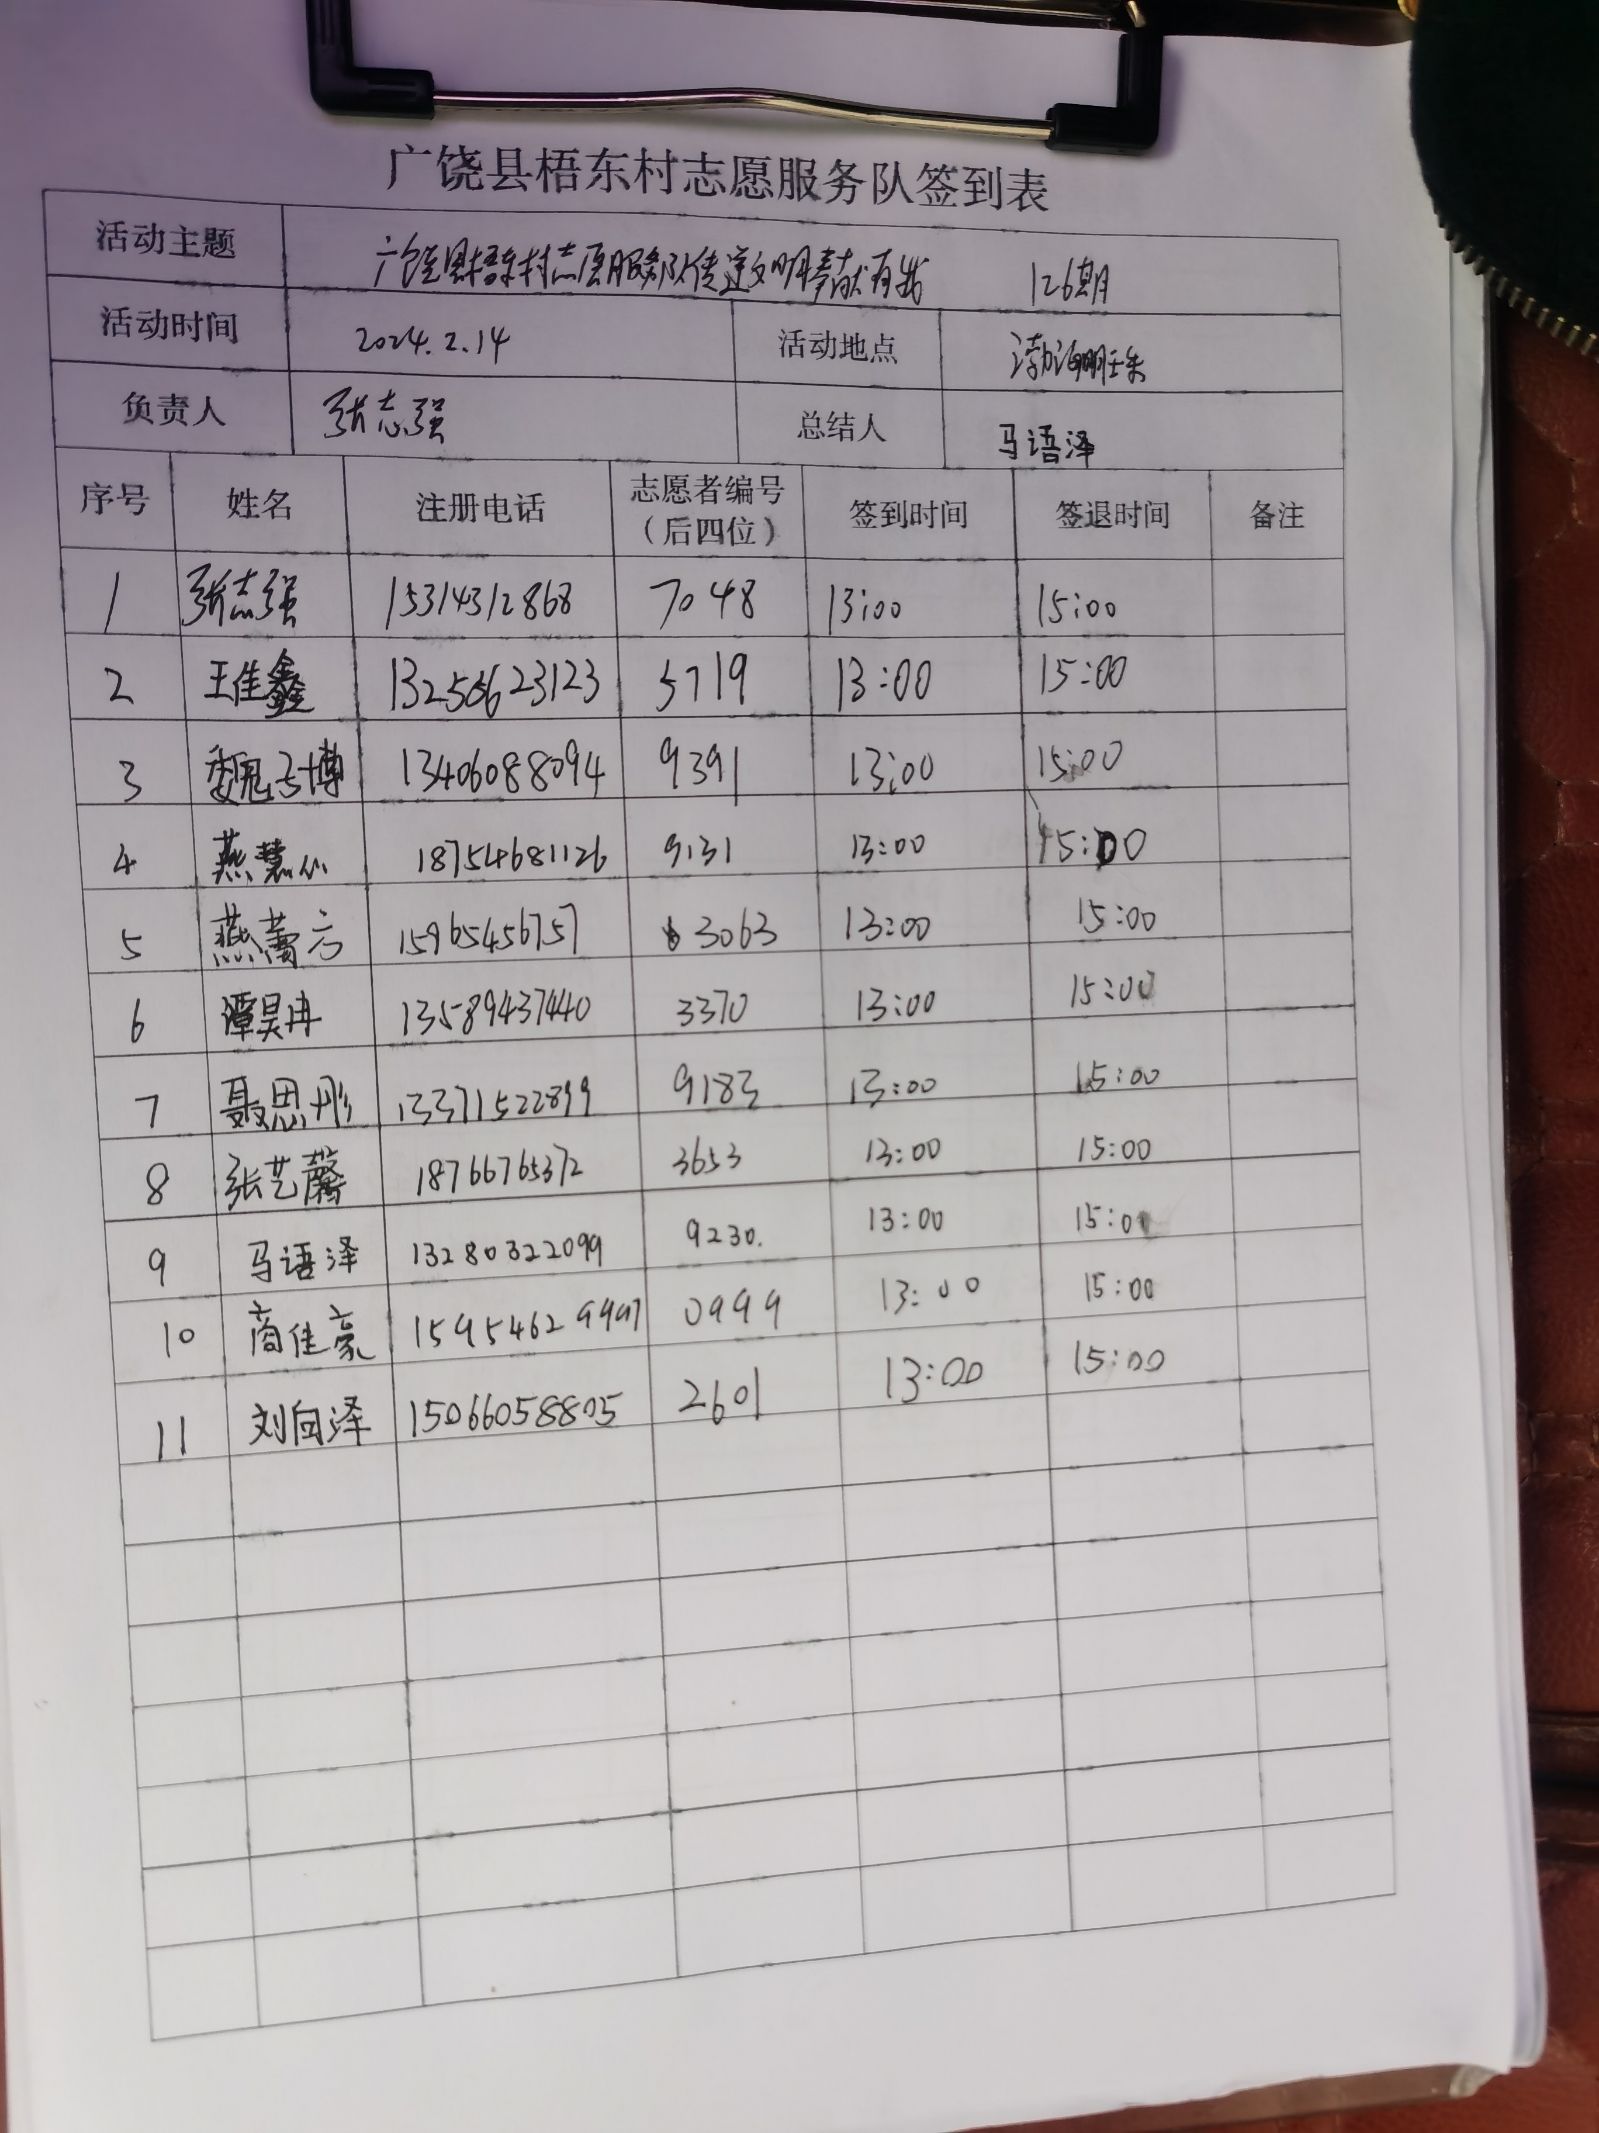 广饶县梧东村志愿服务队签到表
活动主题 广饶县梧东村志愿服务队传递文明奉献有我 126期
活动时间 2024.2.14 活动地点 渤海明珠
负责人 张志强 总结人 马语泽
序号 姓名 注册电话 志愿者编号（后四位） 签到时间 签退时间 备注
1 张志强 15314312868 7048 13:00 15:00
2 王佳鑫 13256623123 5719 13:00 15:00
3 魏子博 13406088094 9391 13:00 15:00
4 燕慧心 18754681126 9131 13:00 15:00
5 燕 方 15965456757 3063 13:00 15:00
6 谭昊冉 13589437440 3370 13:00 15:00
7 聂思彤 13371522899 9183 13:00 15:00
8 张艺馨 18766765372 3653 13:00 15:00
9 马语泽 13280322099 9230. 13:00 15:00
10 商佳豪 15954629997 0999 13:00 15:00
11 刘向泽 15066058805 2601 13:00 15:00